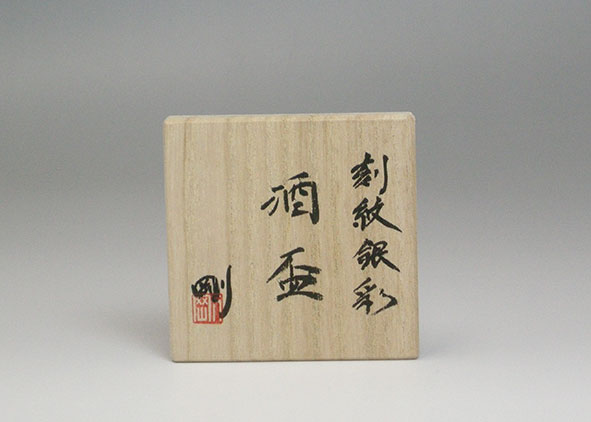 刻紋銀彩
酒盃
剛